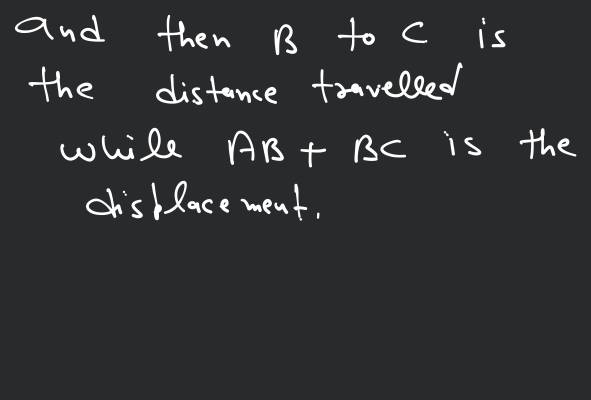 and then B to C is
the distance travelled
while AB + BC is the
displacement.